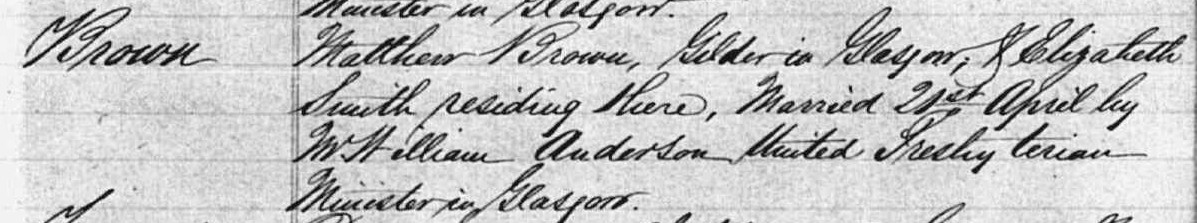 Minister in Glasgow.
Brown
Matthew Brown, Gilder in Glasgow, & Elizabeth
Smith residing there, Married 21st April by
Mr William Anderson United Presbyterian
Minister in Glasgow.